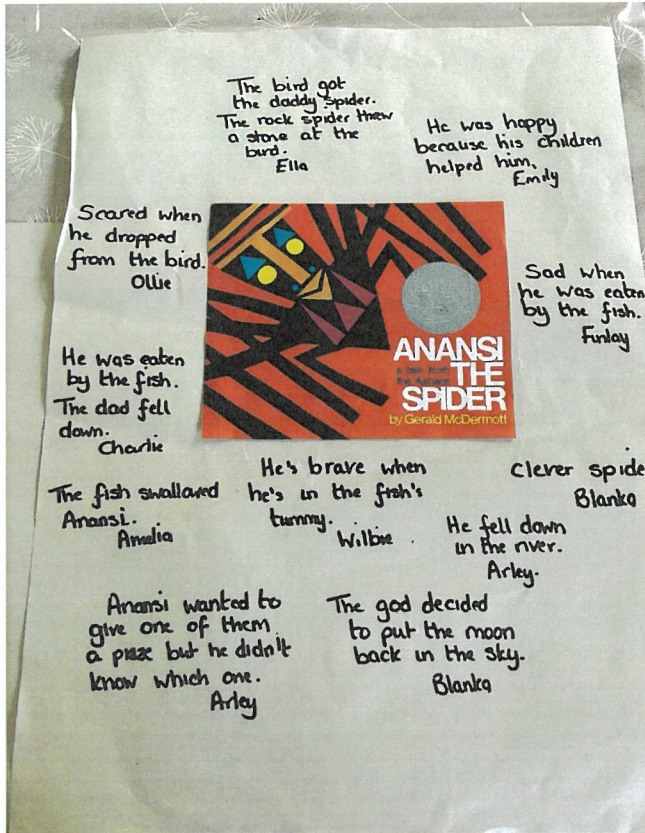 The bird got
the daddy spider.
The rock spider threw
a stone at the
bird.
Ella
He was happy
because his children
helped him.
Emily
Scared when
he dropped
from the bird.
Ollie
ANANSI
THE
SPIDER
a tale from
the Ashanti
by Gerald McDermott
Sad when
he was eaten
by the fish.
Finlay
He was eaten
by the fish.
The dad fell
down.
Charlie
The fish swallowed
Anansi.
Amelia
He's brave when
he's in the fish's
tummy.
Wilbie
Clever spide
Blanka
He fell down
in the river.
Arley.
Anansi wanted to
give one of them
a prize but he didn't
know which one.
Arley
The god decided
to put the moon
back in the sky.
Blanka